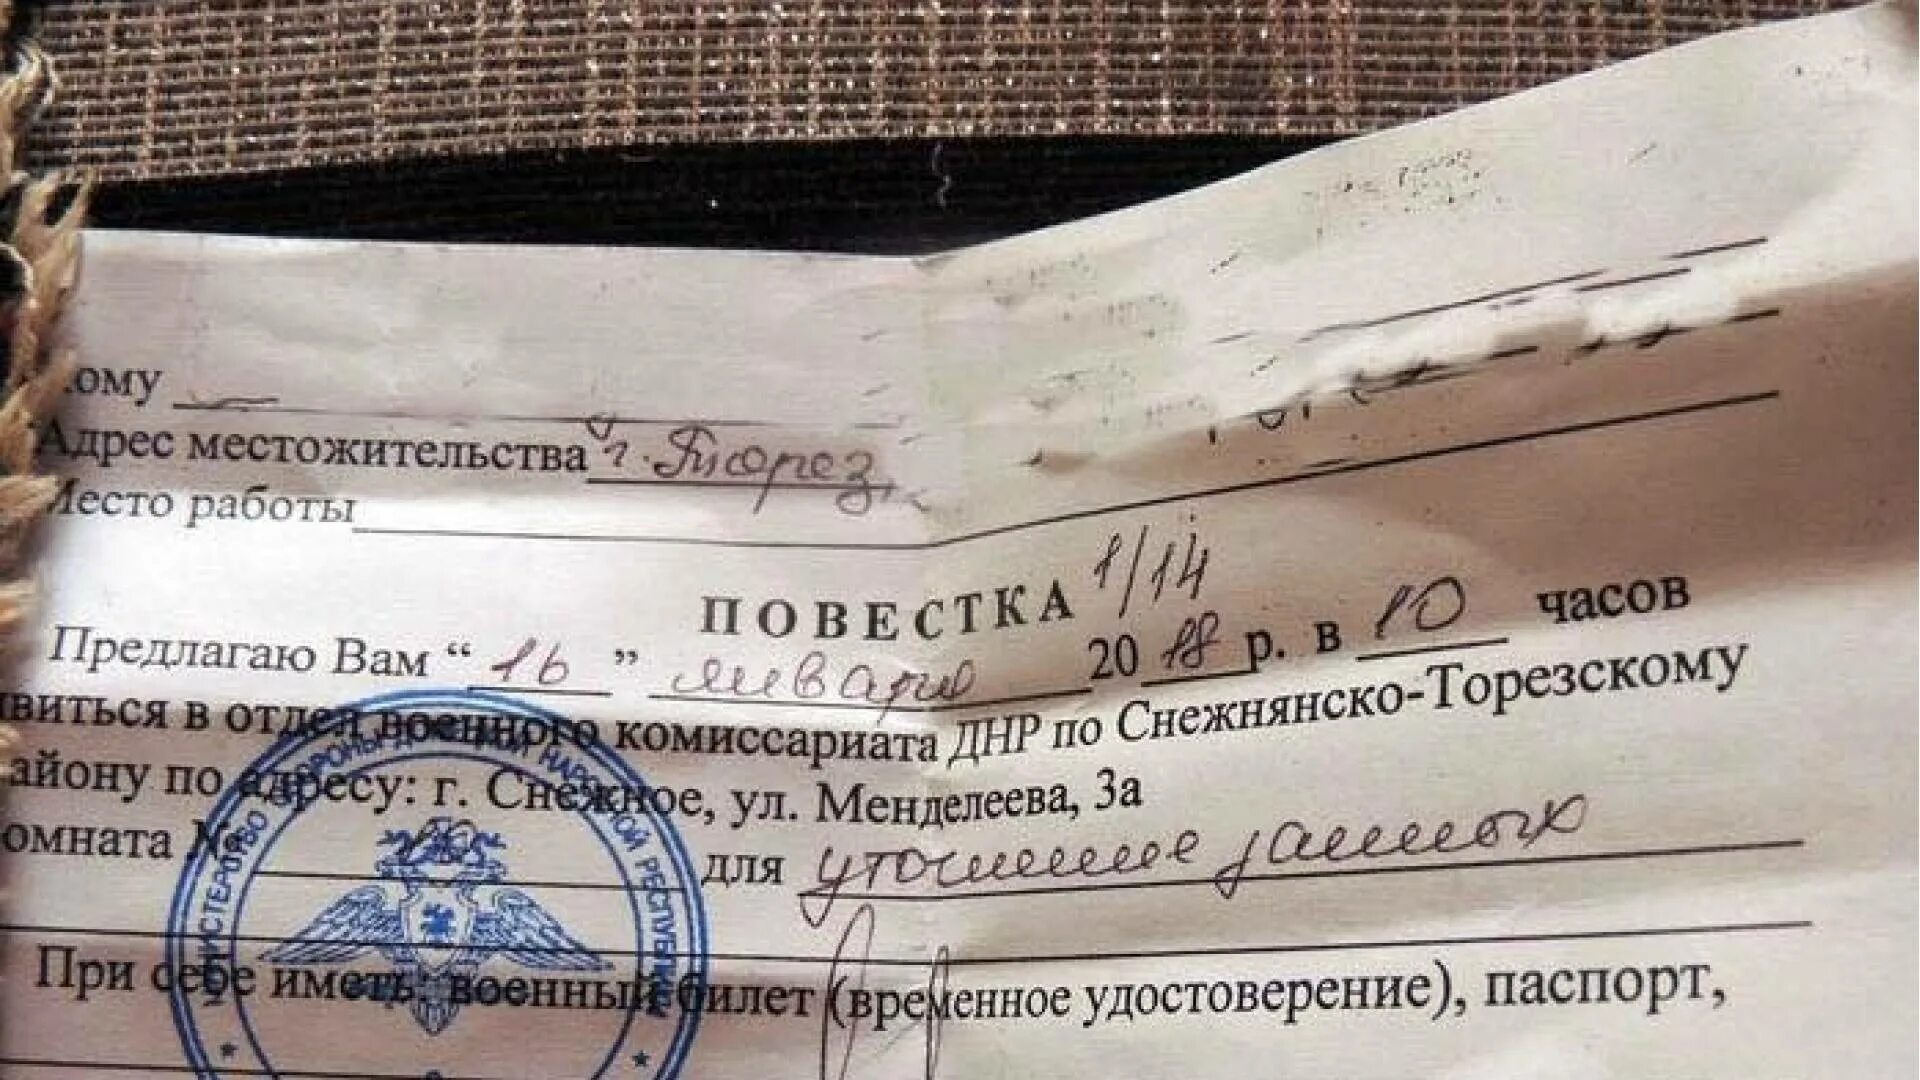 кому
Адрес местожительства г. Торез
Место работы
ПОВЕСТКА 1/14
Предлагаю Вам “16” января 2018 р. в 10 часов
явиться в отдел военного комиссариата ДНР по Снежнянско-Торезскому
айону по адресу: г. Снежное, ул. Менделеева, 3а
омната № для уточнение данных
При себе иметь: военный билет (временное удостоверение), паспорт,
МИНИСТЕРСТВО ОБОРОНЫ ДОНЕЦКОЙ НАРОДНОЙ РЕСПУБЛИКИ